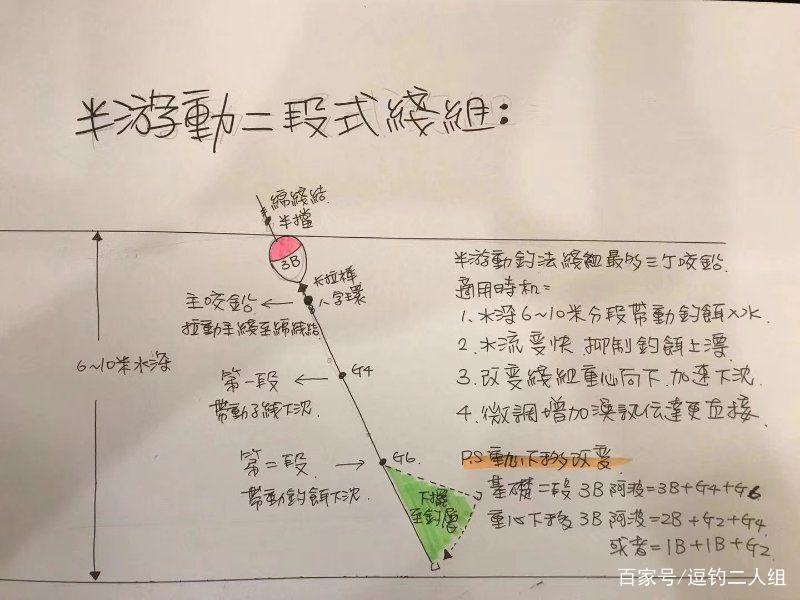 半游動二段式綫組:
綿綫結
半擋
3B
卡拉棒
八字環
主咬鉛
拉動主綫至綿綫結
6~10米水深
第一段
帶動子綫下沈
G4
第二段
帶動釣餌下沈
G6
下擺
至釣層
半游動釣法綫組最多三个咬鉛.
適用時机:
1.水深6~10米分段帶動釣餌入水.
2.水流变快 抑制釣餌上漂
3.改变綫組重心向下.加速下沈.
4.微調增加漁訊伝達更直接.
P.S 重心下移改变
基礎二段 3B 阿波=3B+G4+G6
重心下移 3B 阿波=2B+G2+G4
或者=1B+1B+G2
百家号/逗钓二人组